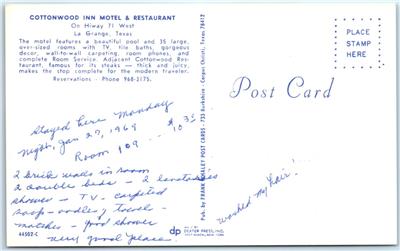 COTTONWOOD INN MOTEL & RESTAURANT
On Hiway 71 West
La Grange, Texas
The motel features a beautiful pool and 35 large,
over-sized rooms with TV, tile baths, gorgeous
decor, wall-to-wall carpeting, room phones, and
complete Room Service. Adjacent Cottonwood Res-
taurant, famous for its steaks — thick and juicy,
makes the stop complete for the modern traveler.
Reservations - Phone 968-3175.
Stayed here Monday
night, Jan 27, 1969
$10.35
Room 109
2 brick walls in room
2 double beds - 2 lavatories
shower - TV - carpeted
soap - oodles, towel -
matches - good shower
very good place.
44502-C
Pub. by FRANK WHALEY POST CARDS - 733 Berkshire - Corpus Christi, Texas 78412
Post Card
PLACE
STAMP
HERE
washed my hair!
dp
DEXTER PRESS, INC.
WEST NYACK, NEW YORK